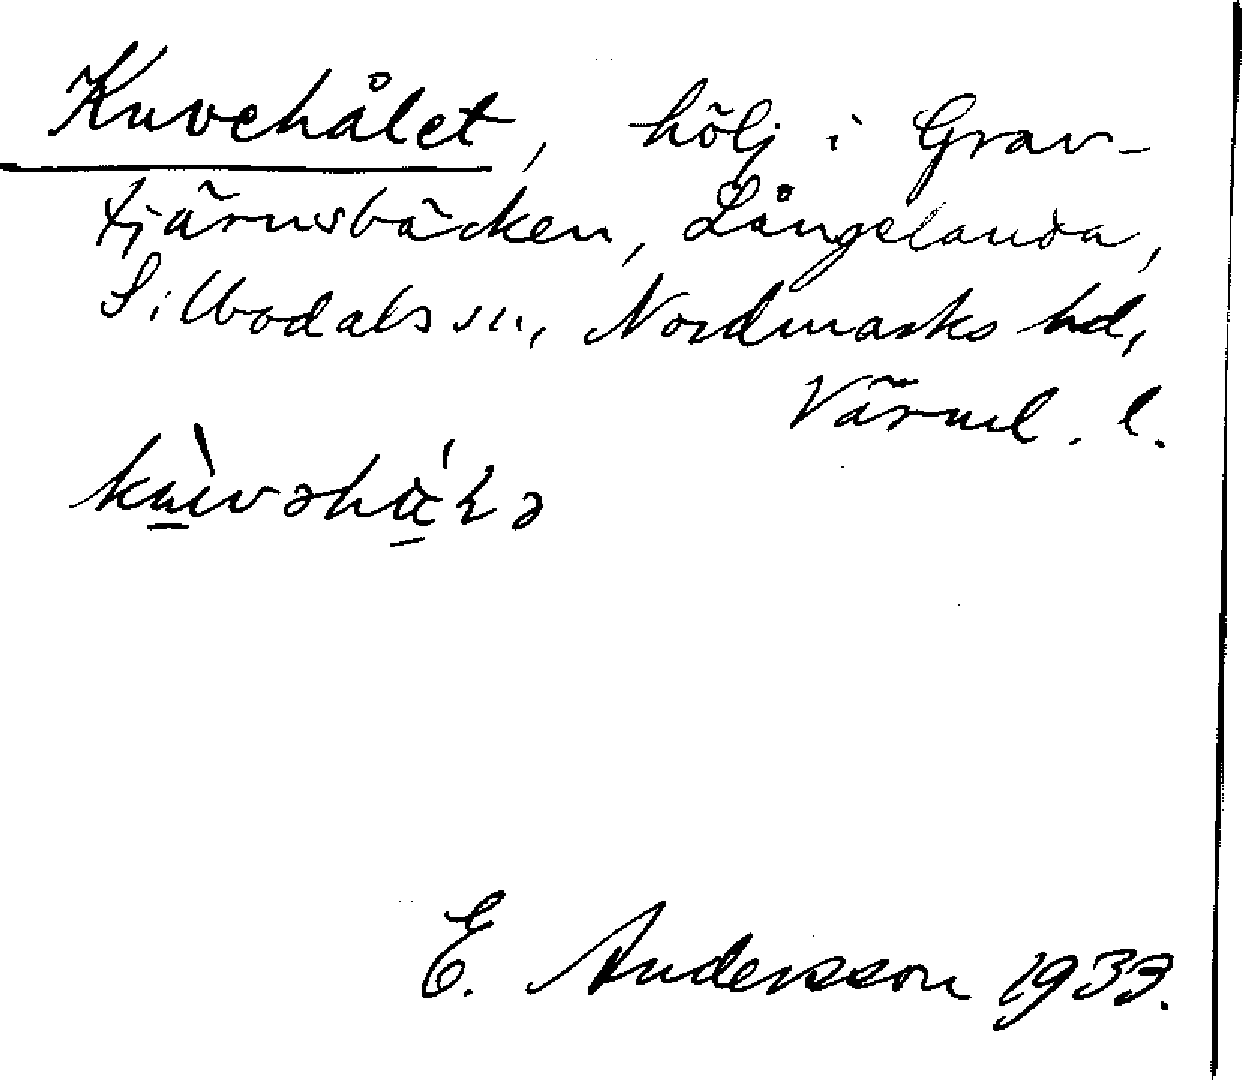 Kuvehålet, hölj i Grav-
tjärnsbäcken, Långelanda,
Silbodals sn, Nordmarks hd,
Värml. l.
E. Andersson 1933.